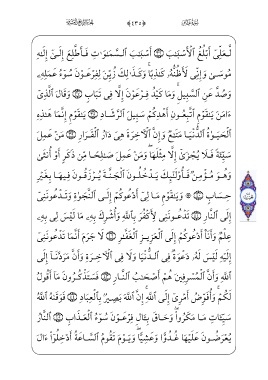 لَّعَلِّىٓ أَبْلُغُ ٱلْأَسْبَٰبَ أَسْبَٰبَ ٱلسَّمَٰوَٰتِ فَأَطَّلِعُ إِلَىٰٓ إِلَٰهِ
مُوسَىٰ وَإِنِّى لَأَظُنُّهُۥ كَٰذِبًا وَكَذَٰلِكَ زُيِّنَ لِفِرْعَوْنَ سُوٓءُ عَمَلِهِۦ
وَصُدَّ عَنِ ٱلسَّبِيلِ وَمَا كَيْدُ فِرْعَوْنَ إِلَّا فِى تَبَابٍ وَقَالَ ٱلَّذِىٓ
ءَامَنَ يَٰقَوْمِ ٱتَّبِعُونِ أَهْدِكُمْ سَبِيلَ ٱلرَّشَادِ يَٰقَوْمِ إِنَّمَا هَٰذِهِ
ٱلْحَيَوٰةُ ٱلدُّنْيَا مَتَٰعٌ وَإِنَّ ٱلْءَاخِرَةَ هِىَ دَارُ ٱلْقَرَارِ مَنْ عَمِلَ
سَيِّئَةً فَلَا يُجْزَىٰٓ إِلَّا مِثْلَهَا وَمَنْ عَمِلَ صَٰلِحًا مِّن ذَكَرٍ أَوْ أُنثَىٰ
وَهُوَ مُؤْمِنٌ فَأُو۟لَٰٓئِكَ يَدْخُلُونَ ٱلْجَنَّةَ يُرْزَقُونَ فِيهَا بِغَيْرِ
حِسَابٍ ۞ وَيَٰقَوْمِ مَا لِىٓ أَدْعُوكُمْ إِلَى ٱلنَّجَوٰةِ وَتَدْعُونَنِىٓ
إِلَى ٱلنَّارِ تَدْعُونَنِى لِأَكْفُرَ بِٱللَّهِ وَأُشْرِكَ بِهِۦ مَا لَيْسَ لِى بِهِۦ
عِلْمٌ وَأَنَا۠ أَدْعُوكُمْ إِلَى ٱلْعَزِيزِ ٱلْغَفَّٰرِ لَا جَرَمَ أَنَّمَا تَدْعُونَنِىٓ
إِلَيْهِ لَيْسَ لَهُۥ دَعْوَةٌ فِى ٱلدُّنْيَا وَلَا فِى ٱلْءَاخِرَةِ وَأَنَّ مَرَدَّنَآ إِلَى
ٱللَّهِ وَأَنَّ ٱلْمُسْرِفِينَ هُمْ أَصْحَٰبُ ٱلنَّارِ فَسَتَذْكُرُونَ مَآ أَقُولُ
لَكُمْ وَأُفَوِّضُ أَمْرِىٓ إِلَى ٱللَّهِ إِنَّ ٱللَّهَ بَصِيرٌۢ بِٱلْعِبَادِ فَوَقَىٰهُ ٱللَّهُ
سَيِّـَٔاتِ مَا مَكَرُوا۟ وَحَاقَ بِـَٔالِ فِرْعَوْنَ سُوٓءُ ٱلْعَذَابِ ٱلنَّارُ
يُعْرَضُونَ عَلَيْهَا غُدُوًّا وَعَشِيًّا وَيَوْمَ تَقُومُ ٱلسَّاعَةُ أَدْخِلُوٓا۟ ءَالَ